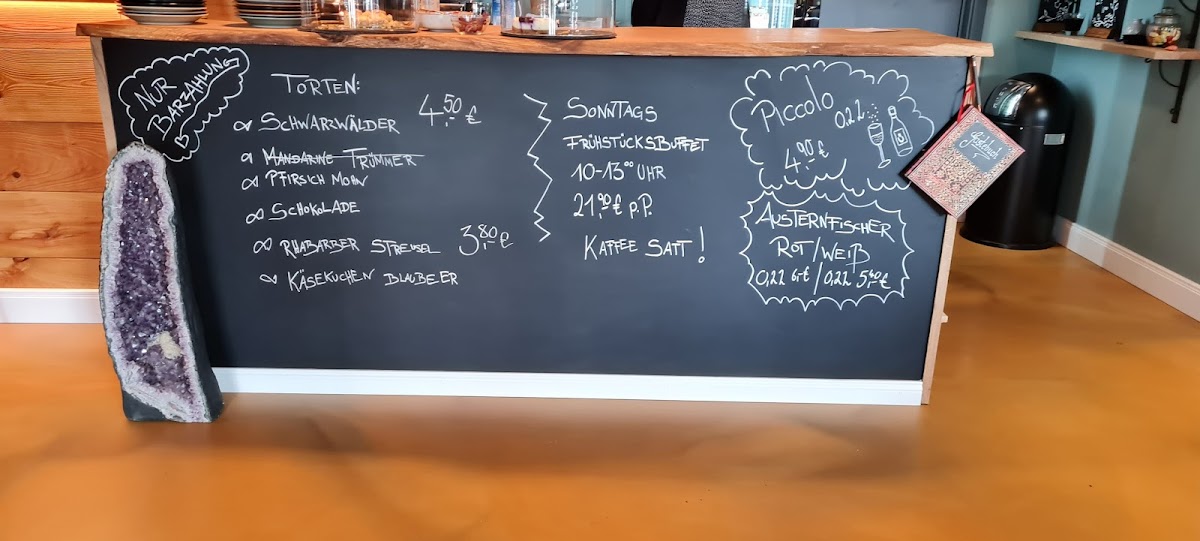 NUR
BARZAHLUNG
TORTEN:
SCHWARZWÄLDER 4,50 €
MANDARINE TRÜMMER
PFIRSICH MOHN
SCHOKOLADE
RHABARBER STREUSEL 3,80 €
KÄSEKUCHEN BLAUBEER
SONNTAGS
FRÜHSTÜCKSBUFFET
10-13°° UHR
21,90 € p.P.
KAFFEE SATT!
Piccolo 0,2l
4,00 €
AUSTERNFISCHER
ROT/WEIß
0,2l 6,-€ / 0,2l 5,40 €